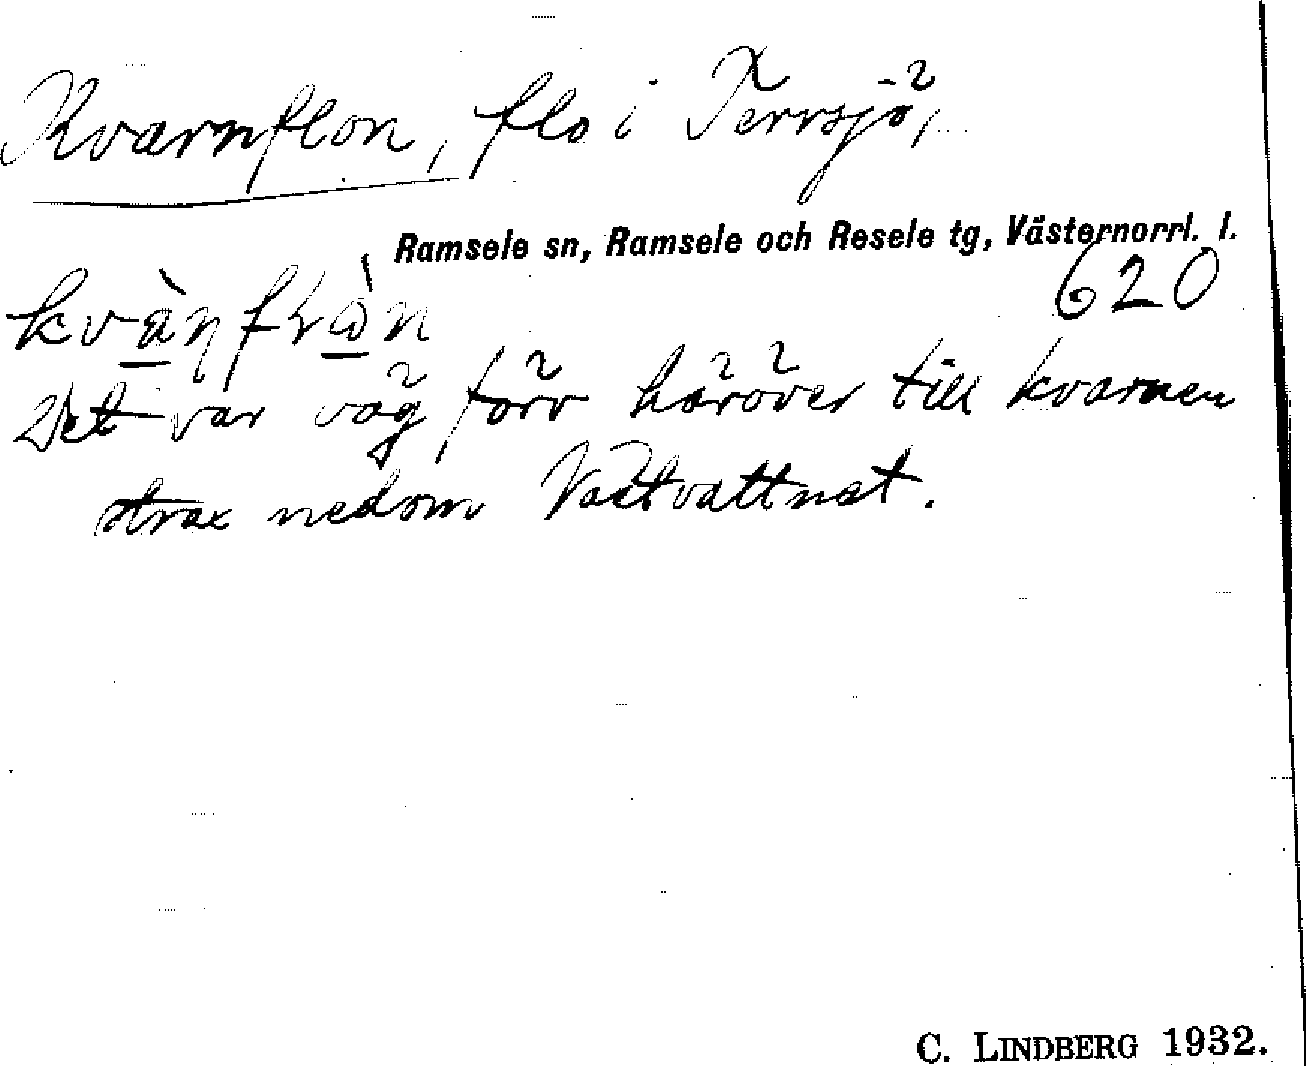 Kvarnflon, flo i Terrsjö,
Ramsele sn, Ramsele och Resele tg, Västernorrl. l.
620
Det var väg förr häröver till kvarnen
strax nedom Västvattnet.
C. LINDBERG 1932.